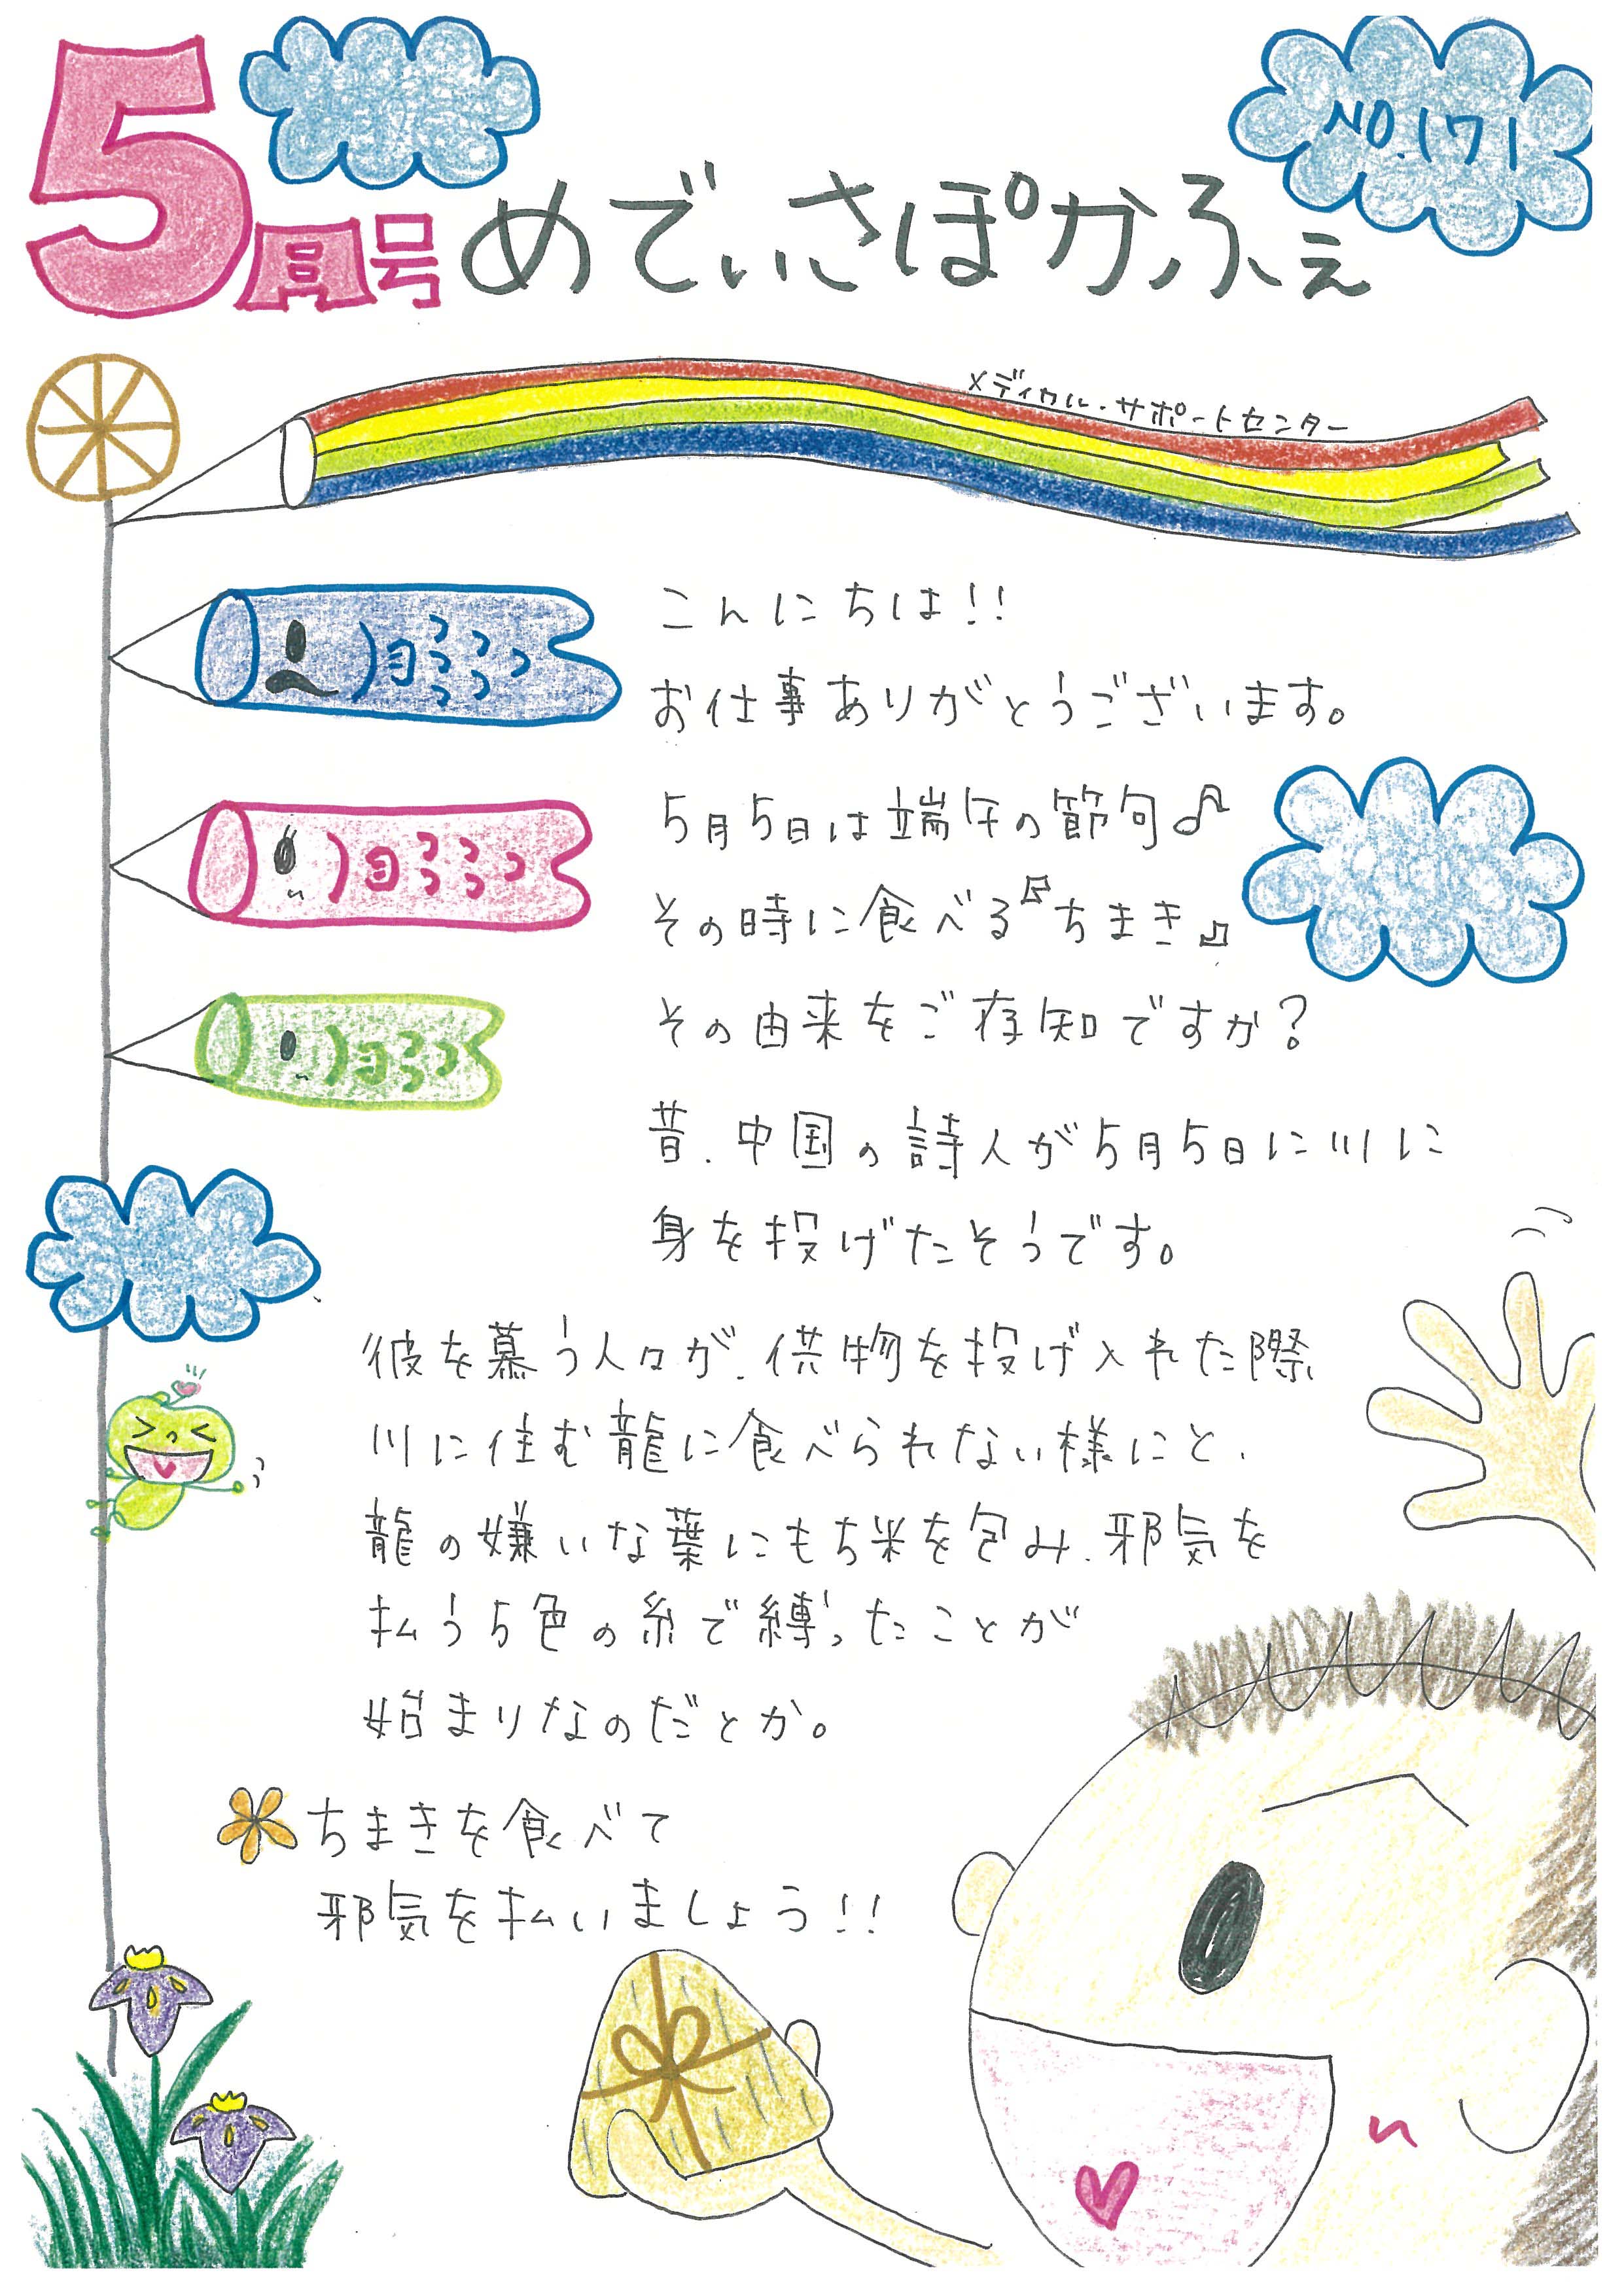 5月号
NO.171
めでぃさぽかふぇ
メディカル・サポートセンター
こんにちは!!
お仕事ありがとうございます。
5月5日は端午の節句♪
その時に食べる『ちまき』
その由来をご存知ですか?
昔、中国の詩人が5月5日に川に
身を投げたそうです。
彼を慕う人々が、供物を投げ入れた際
川に住む龍に食べられない様にと、
龍の嫌いな葉にもち米を包み、邪気を
払う5色の糸で縛ったことが
始まりなのだとか。
ちまきを食べて
邪気を払いましょう!!